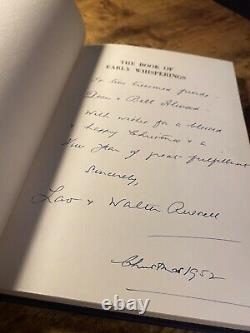 THE BOOK OF
EARLY WHISPERINGS
To our esteemed friends
Dean & Bell
With wishes for a blessed
& happy Christmas & a
New Year of great fulfillment
Sincerely,
Lao & Walter Russell
Christmas 1952